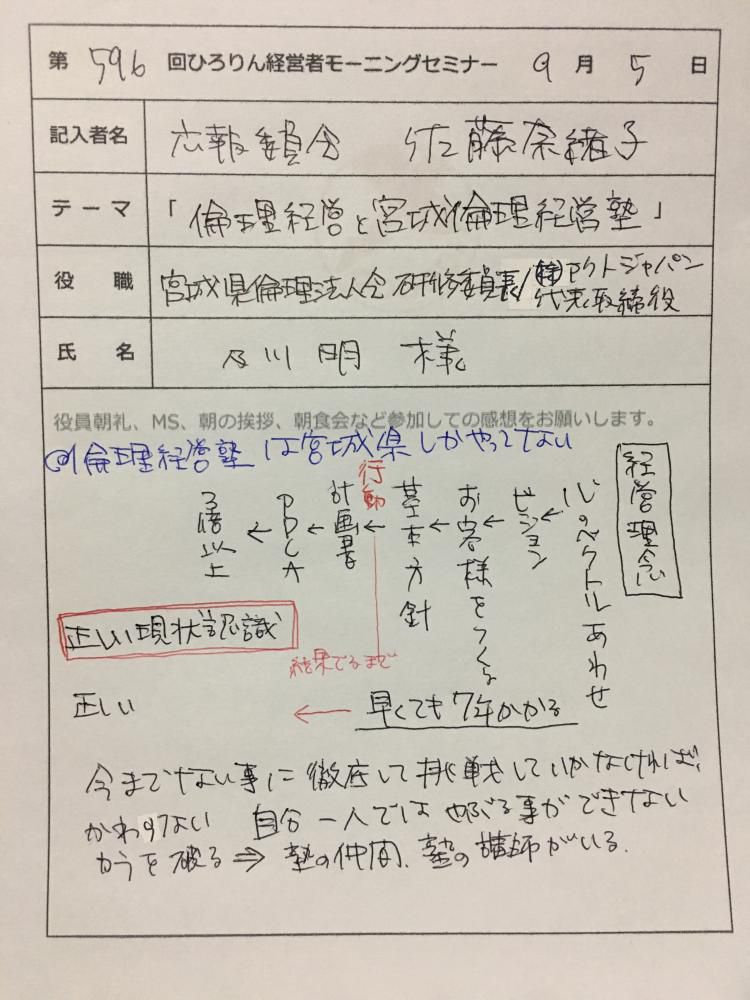 第 596 回ひろりん経営者モーニングセミナー 9 月 5 日
記入者名 広報委員会 佐藤奈緒子
テーマ 「倫理経営と宮城倫理経営塾」
役職 宮城県倫理法人会 研修委員長/㈱アクトジャパン
代表取締役
氏名 及川 明 様
役員朝礼、MS、朝の挨拶、朝食会など参加しての感想をお願いします。
倫理経営塾は宮城県しかやってない
経営理念
心のベクトルあわせ
ビジョン
お客様をつくる
基本方針
行動
計画書
PDCA
3倍以上
正しい現状認識
結果でるまで
正しい
早くても7年かかる
今までにない事に徹底して挑戦していかなければ、
かわれない 自分一人ではやぶる事ができない
カラを破る⇒ 塾の仲間、塾の講師がいる。